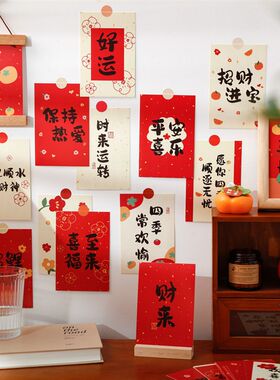 好
运
保持
热爱
招财
进宝
时
来
运
转
平安
喜乐
愿你
顺遂
无忧
顺水
财神
喜至
福来
四季
常欢愉
财
来